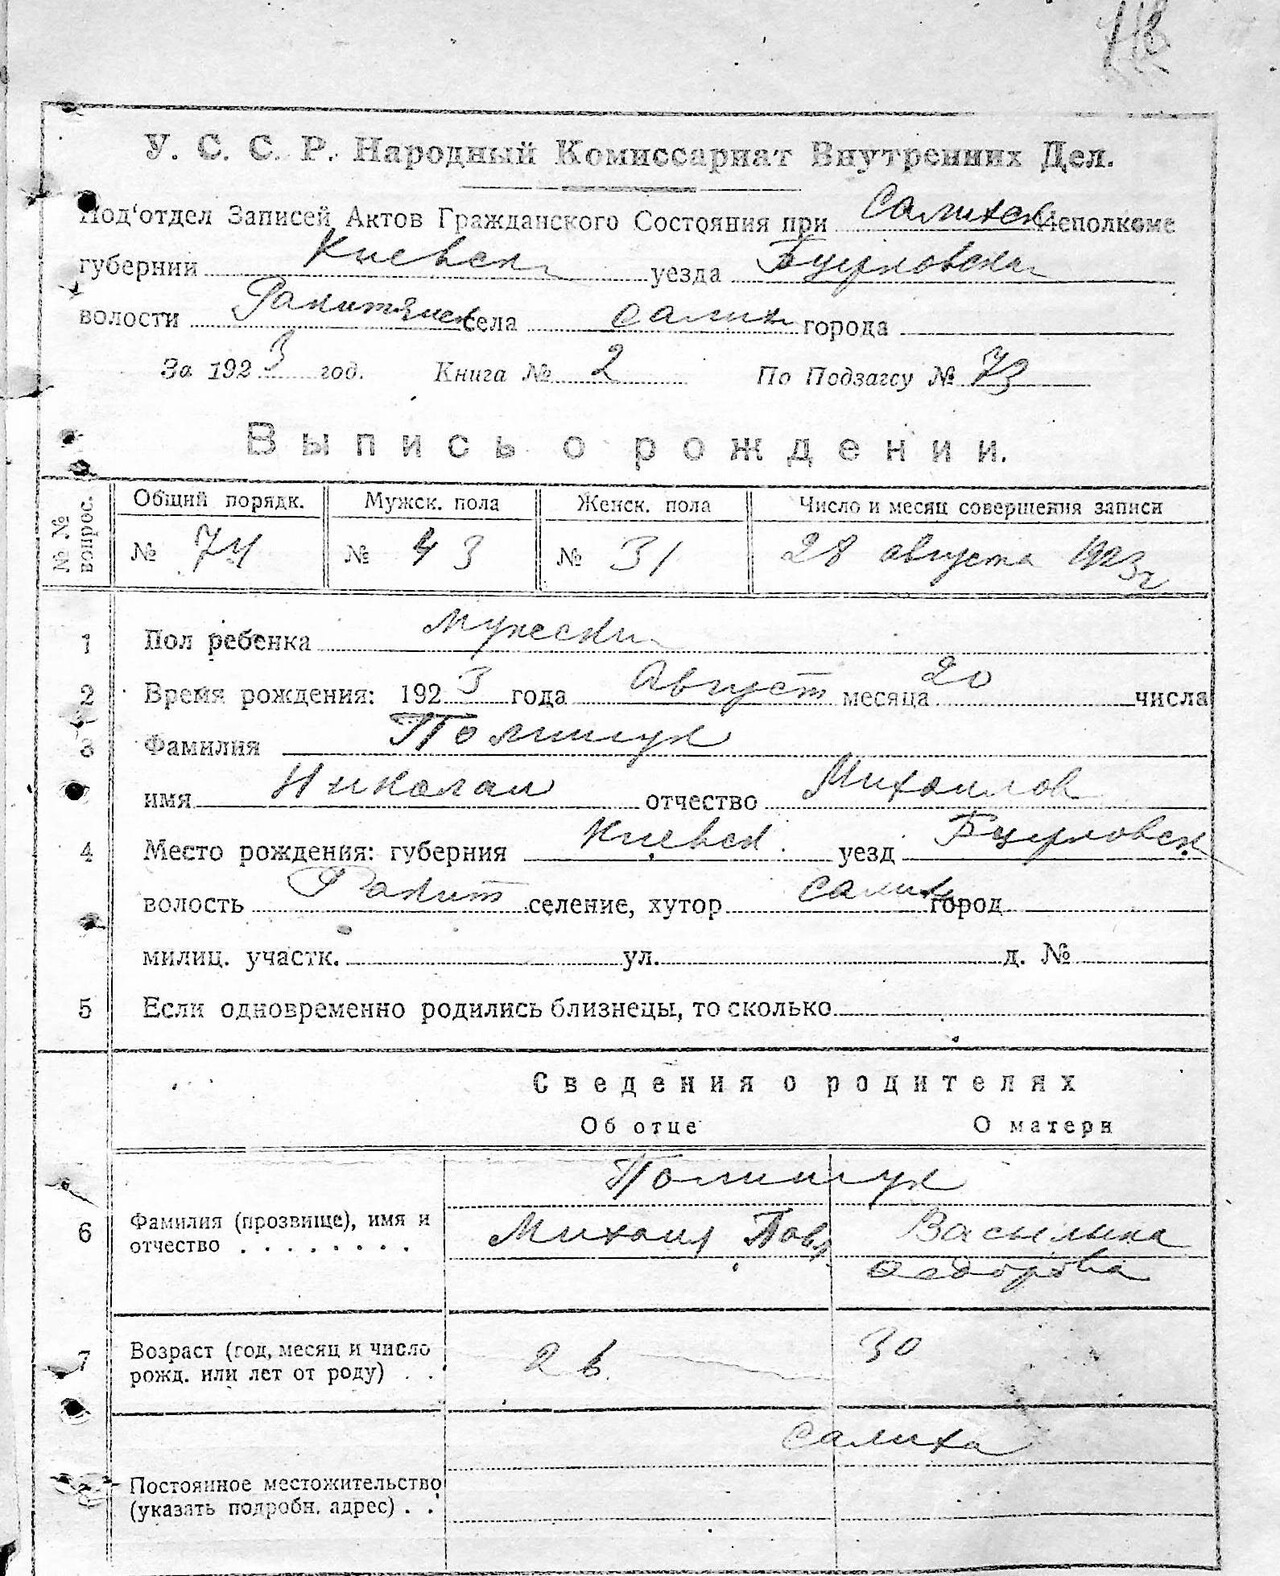 У. С. С. Р. Народный Комиссариат Внутренних Дел.
Под'отдел Записей Актов Гражданского Состояния при Салихск Исполкоме
губернии Киевск уезда Бцерковска
волости Ракитянск села Салих города
За 1923 год. Книга № 2 По Подзагсу № 73
Выпись о рождении.
№ № вопрос. Общий порядк. Мужск. пола Женск. пола Число и месяц совершения записи
№ 74 № 43 № 31 28 августа 1923 г
1 Пол ребенка мужски
2 Время рождения: 1923 года Август месяца 20 числа
3 Фамилия Полишук
имя Николаи отчество Михаилов
4 Место рождения: губерния Киевск. уезд Бцерковск
волость Ракит селение, хутор Салих город
милиц. участк. ул. д. №
5 Если одновременно родились близнецы, то сколько
Сведения о родителях
Об отце О матери
Полишук
6 Фамилия (прозвище), имя и Михаил Павл Васылына
отчество Федорова
7 Возраст (год, месяц и число 26 30
рожд. или лет от роду)
Салиха
Постоянное местожительство
(указать подробн. адрес)